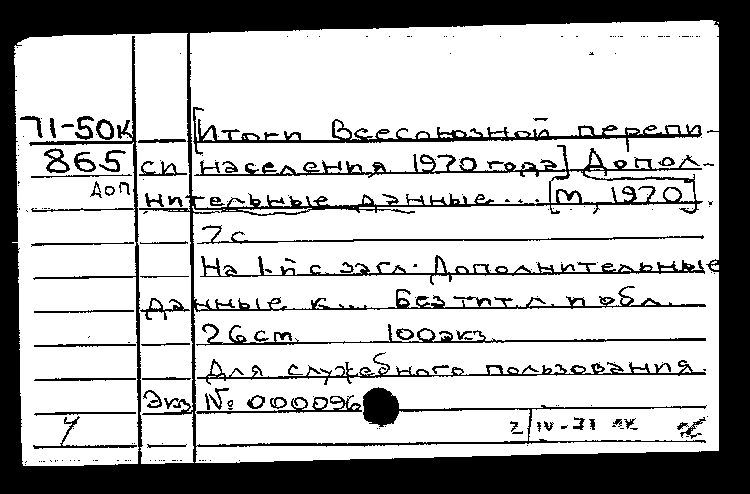 71-50к [Итоги Всесоюзной перепи-
865 си населения 1970 года] Допол-
доп нительные данные... [М, 1970].
7 с
На 1-й с. загл. Дополнительные
данные к... Без тит. л. и обл.
26 см 100 экз
Для служебного пользования.
Экз № 000096
2/IV-71